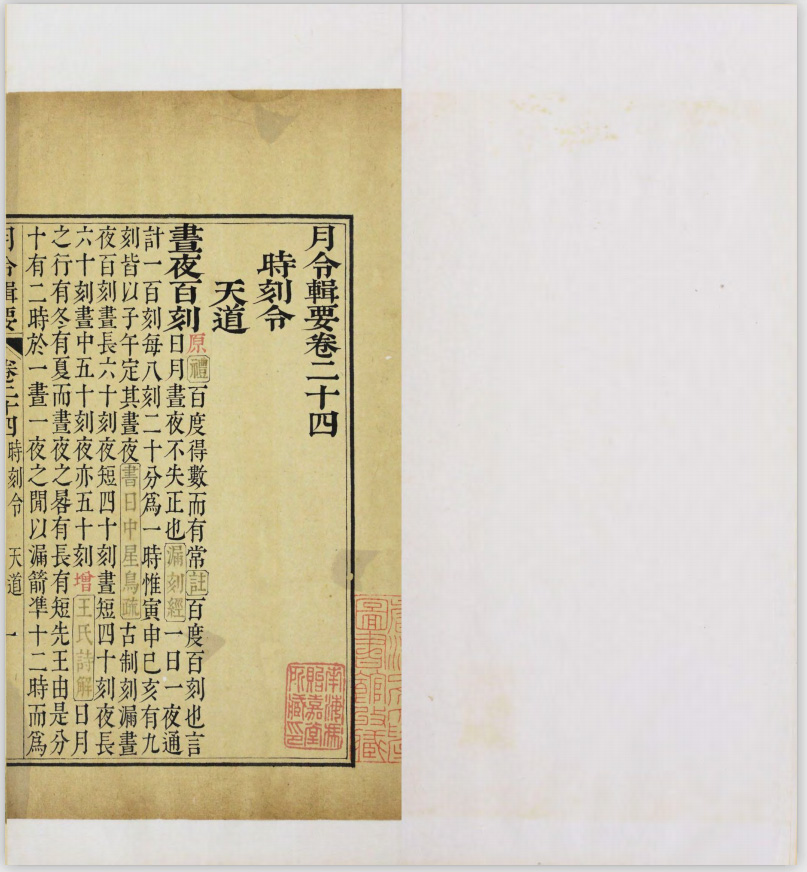 月令輯要卷二十四
時刻令
天道
晝夜百刻原禮百度得數而有常註百度百刻也言
日月晝夜不失正也漏刻經一日一夜通
計一百刻每八刻二十分爲一時惟寅申巳亥有九
刻皆以子午定其晝夜書日中星鳥疏古制刻漏晝
夜百刻晝長六十刻夜短四十刻晝短四十刻夜長
六十刻晝中五十刻夜亦五十刻增王氏詩解日月
之行有冬有夏而晝夜之晷有長有短先王由是分
十有二時於一晝一夜之閒以漏箭準十二時而爲
月令輯要 卷二十四 時刻令 天道 一
南海馮
貽嘉堂
所藏印
圖書館攷藏